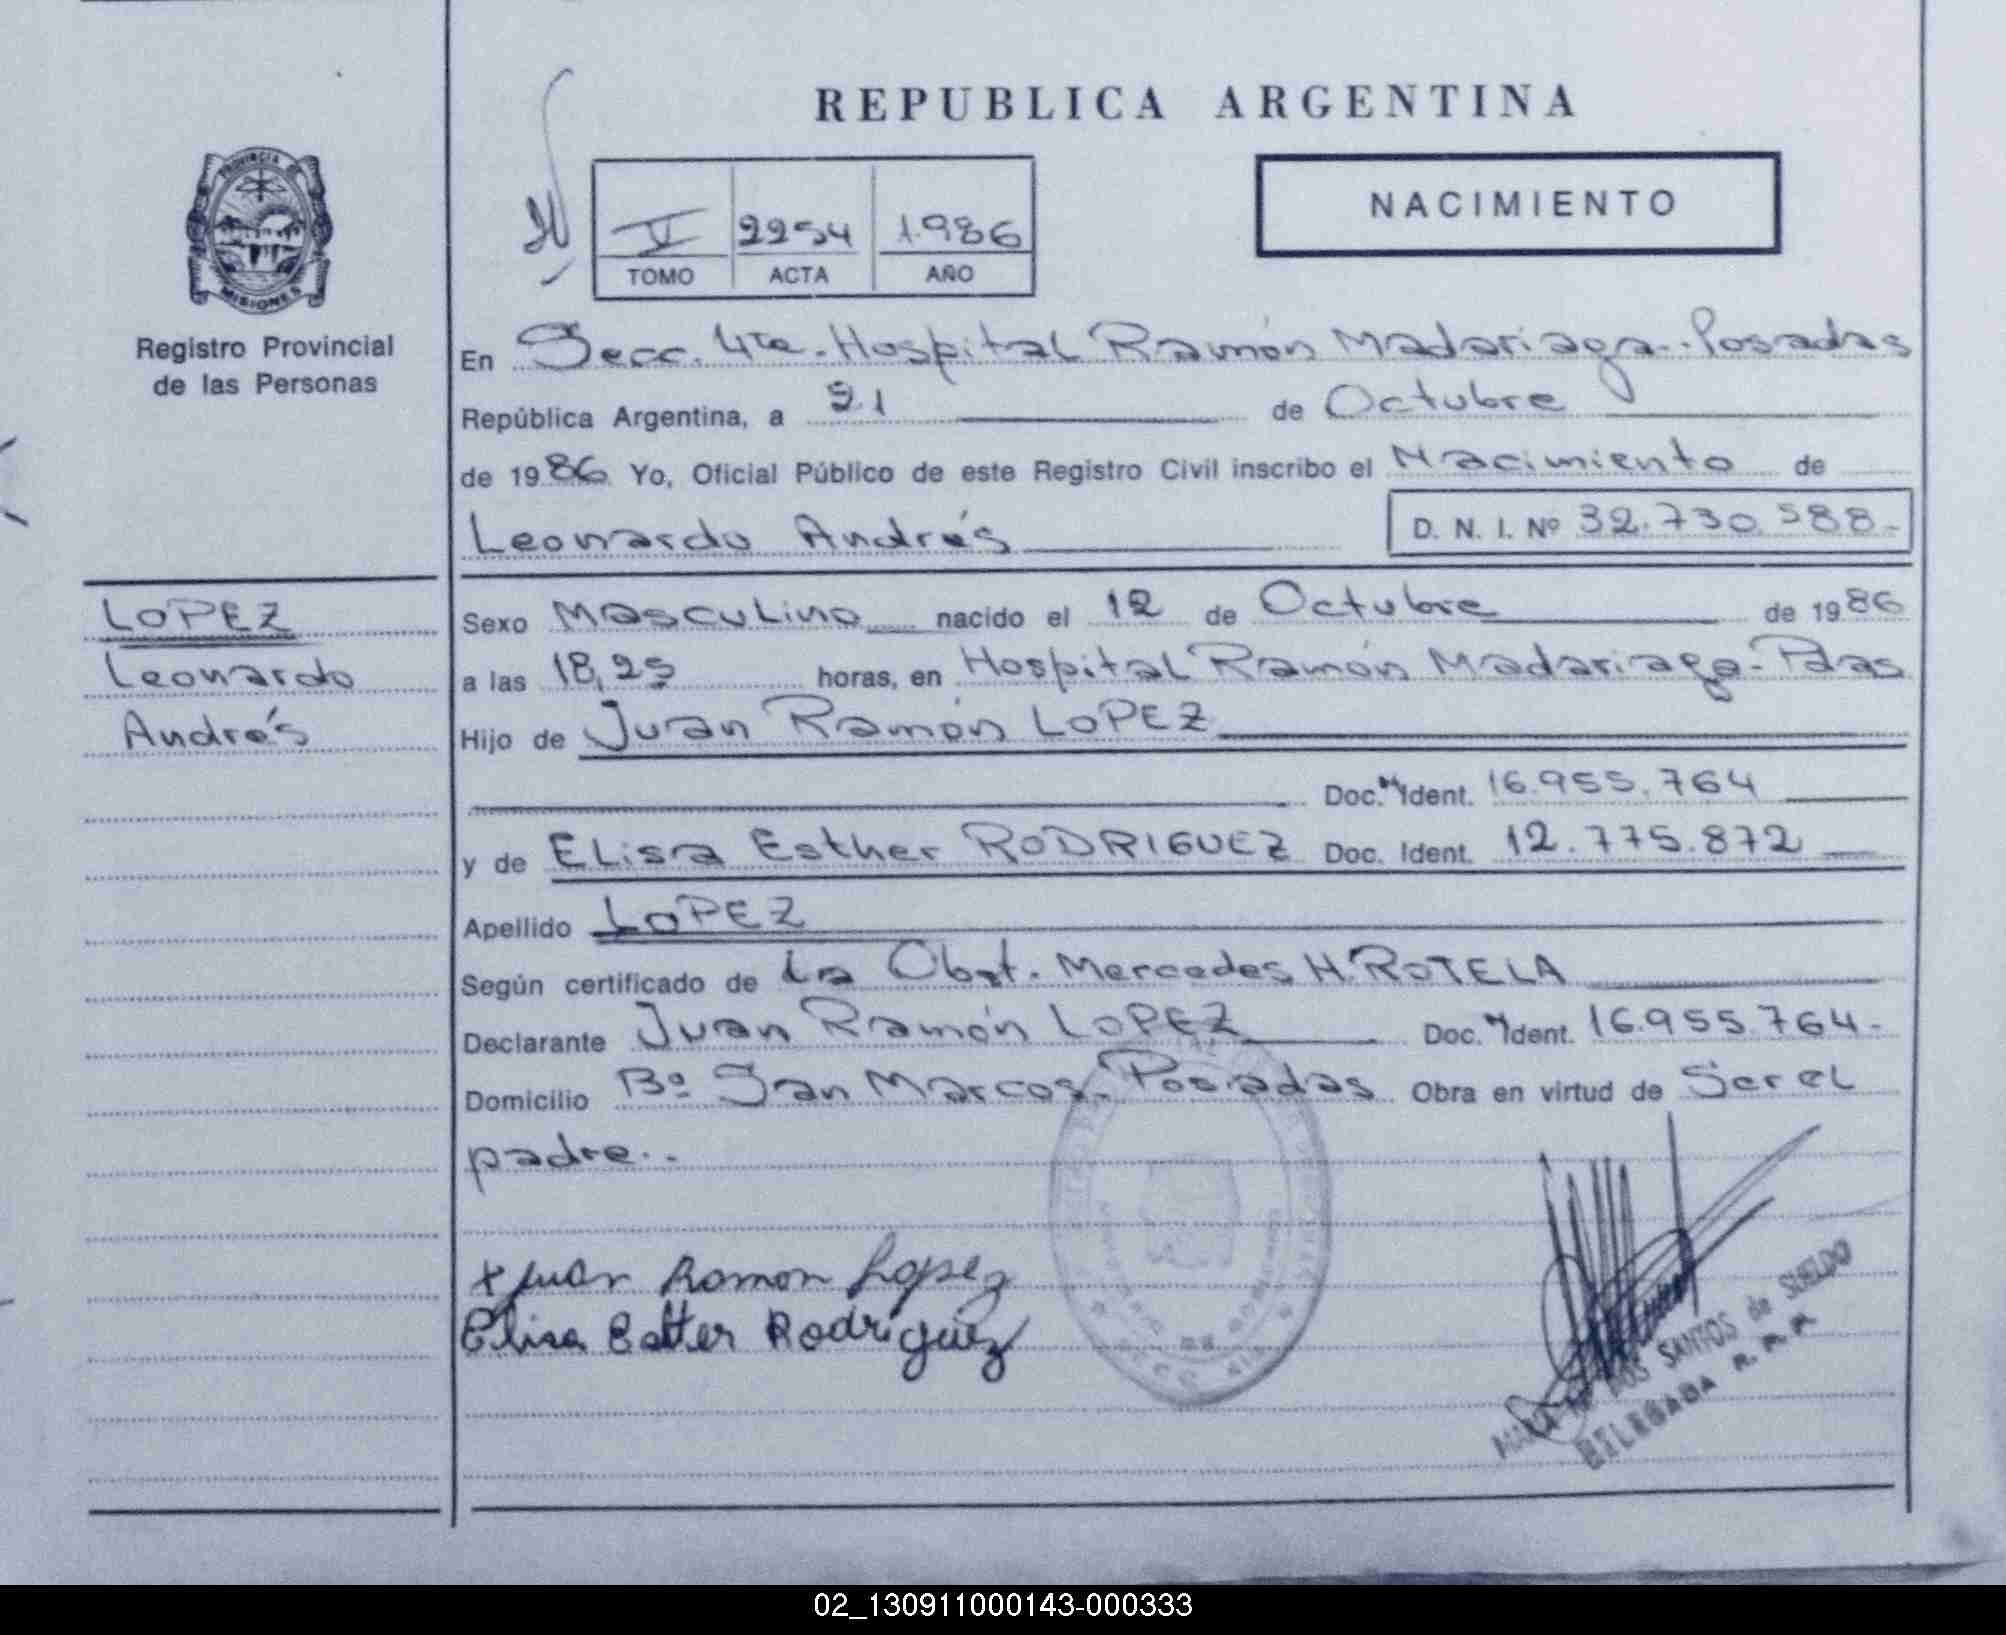 REPUBLICA ARGENTINA
PROVINCIA DE
MISIONES
Registro Provincial
de las Personas
V 2254 1.986
TOMO ACTA AÑO
NACIMIENTO
En Secc. 4ta. Hospital Ramón Madariaga-Posadas
República Argentina, a 21 de Octubre
de 1986 Yo, Oficial Público de este Registro Civil inscribo el Nacimiento de
Leonardo Andrés D. N. I. Nº 32.730.588-
LOPEZ
Leonardo
Andrés
Sexo Masculino nacido el 12 de Octubre de 1986
a las 18,25 horas, en Hospital Ramón Madariaga-Pdas
Hijo de Juan Ramón LOPEZ
Doc. Ident. 16.955.764
y de Elisa Esther RODRIGUEZ Doc. Ident. 12.775.872
Apellido LOPEZ
Según certificado de La Obst. Mercedes H. ROTELA
Declarante Juan Ramón LOPEZ Doc. Ident. 16.955.764-
Domicilio Bº San Marcos-Posadas Obra en virtud de Ser el
padre..
x Juan Ramon Lopez
Elisa Ester Rodriguez
SANTOS de SUELDO
DELEGADA
02_130911000143-000333